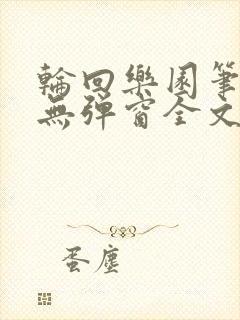 輪回樂園筆
無彈窗全文
蛋塵